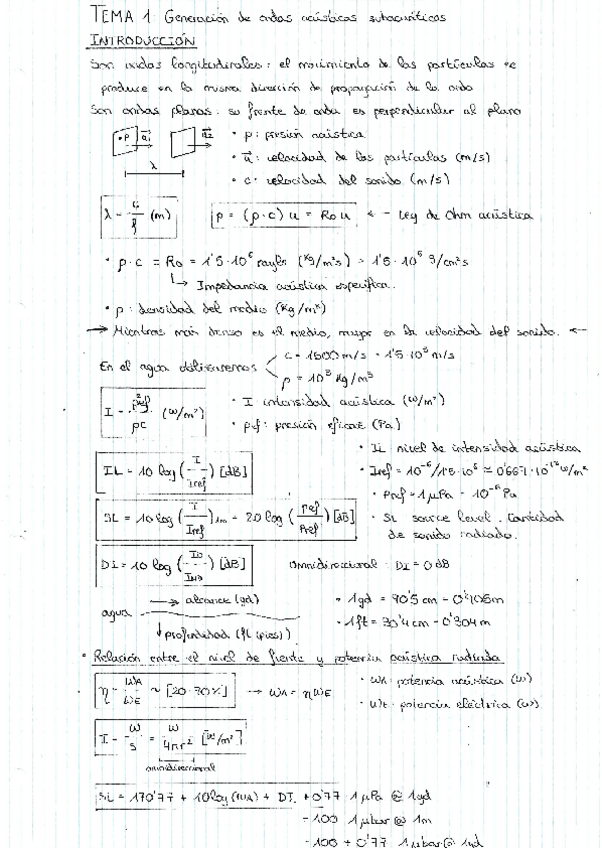 TEMA 1: Generación de ondas acústicas subacuáticas
INTRODUCCIÓN
Son ondas longitudinales: el movimiento de las partículas se
produce en la misma dirección de propagación de la onda
Son ondas planas: su frente de onda es perpendicular al plano
• p: presión acústica
• u⃗: velocidad de las partículas (m/s)
• c: velocidad del sonido (m/s)
λ
λ = c/f (m)
p = (ρ·c) u = Ro u ← - Ley de Ohm acústica
• ρ·c = Ro = 1'5·10⁶ rayls (kg/m²s) = 1'5·10⁵ g/cm²s
↳ Impedancia acústica específica.
• ρ: densidad del medio (kg/m³)
→ Mientras más denso es el medio, mayor es la velocidad del sonido. ←
En el agua utilizaremos
c = 1500 m/s = 1'5·10³ m/s
ρ = 10³ kg/m³
I = p²ef/ρc (w/m²)
• I: intensidad acústica (w/m²)
• pef: presión eficaz (Pa)
IL = 10 log (I/Iref) [dB]
• IL: nivel de intensidad acústica
• Iref = 10⁻⁶/1'5·10⁶ ≃ 0'667·10⁻¹² w/m²
• Pref = 1 μPa = 10⁻⁶ Pa
SL = 10 log (I/Iref)1m = 20 log (Pef/Pref) [dB]
• SL: source level. Cantidad
de sonido radiado.
DI = 10 log (ID/IND) [dB]
Omnidireccional: DI = 0 dB
→ alcance (yd)
agua
↓ profundidad (ft (pies))
• 1yd = 90'5 cm = 0'905m
• 1ft = 30'4 cm = 0'304 m
• Relación entre el nivel de fuente y potencia acústica radiada
η = WA/WE ~ [20-70%] → WA = ηWE
• WA: potencia acústica (w)
• WE: potencia eléctrica (w)
I = W/S = W/4πr² [w/m²]
omnidireccional
SL = 170'77 + 10log(WA) + DI. +0'77 1 μPa @ 1yd
-100 1 μbar @ 1m
-100 + 0'77 1 μbar @ 1yd